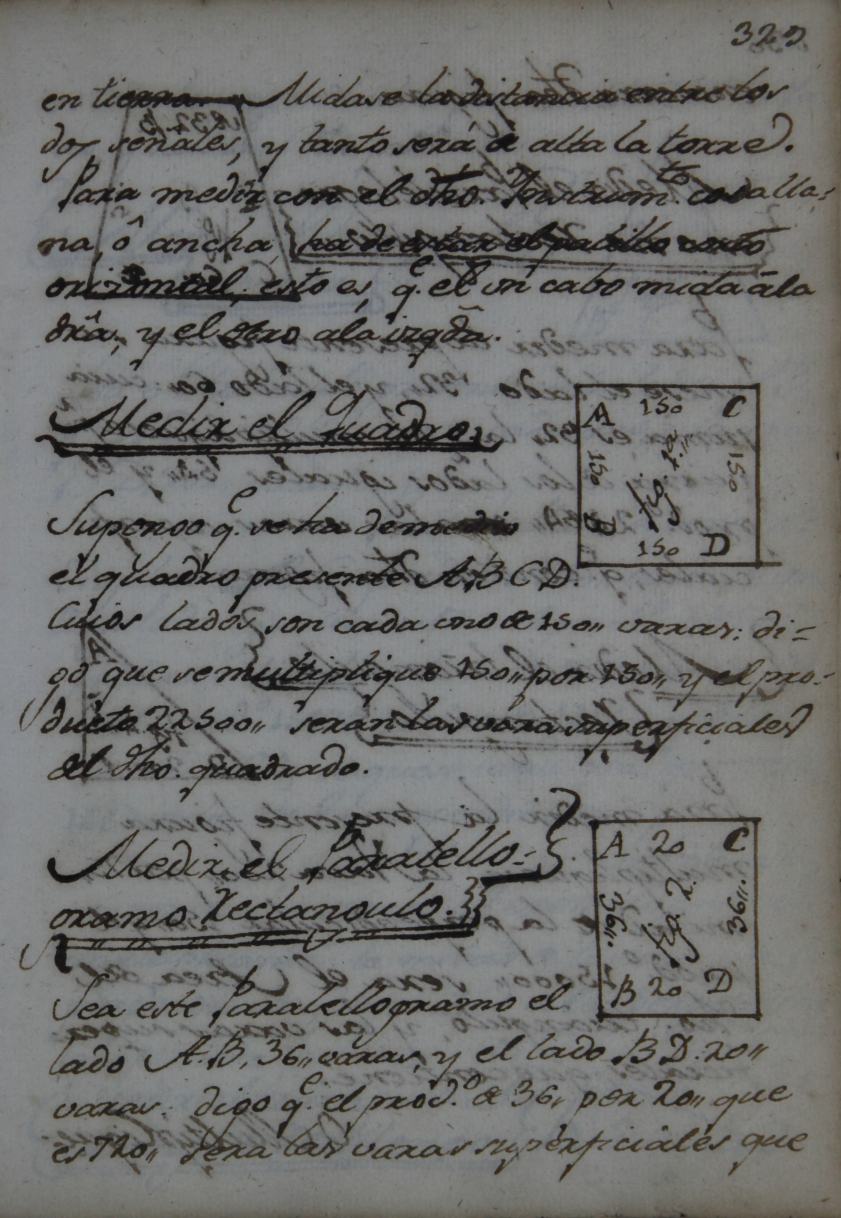 325
en tierra. Midase la distancia entre los
dos señales, y tanto será de alta la torre.
Para medir con el dho. Instrum.to cosa lla-
na, ô ancha, ha de estar el palillo corto
orizontal, esto es, q.e el un cabo mida âla
drâ, y el otro ala izqdâ.
Medir el Quadro.
A 150 C
150
fig.a 1.a
150
B 150 D
Supongo q.e se ha de medir
el quadro presente A.B C D.
Cuios lados son cada uno de 150,, varas: di=
go que se multiplique 150,, por 150,, y el pro-
ducto 22500,, serán las vara superficiales
del dho. quadrado.
Medir el Paralello-
gramo Rectangulo.
A 20 C
36,,
fig.a 2.
36,,
B 20 D
Sea este Paralellogramo el
lado A.B. 36,, varas, y el lado B D. 20,,
varas: digo q.e el prod.o de 36,, por 20,, que
es 720,, sera las varas superficiales que